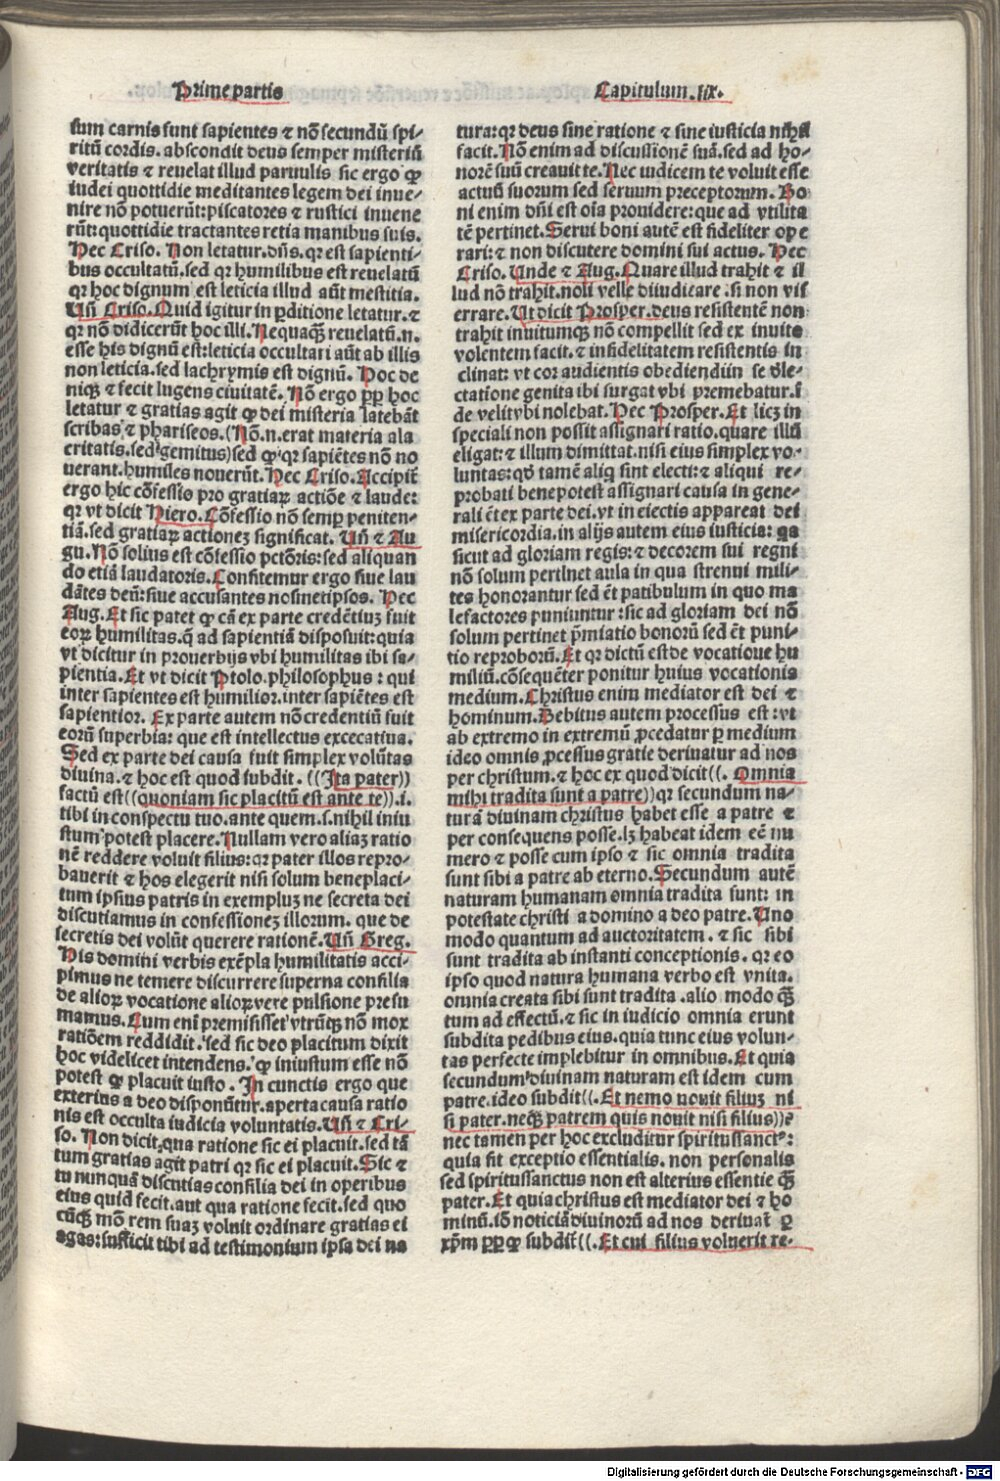 Prime partis
Capitulum .lix.
sum carnis sunt sapientes ⁊ nõ secundũ spi⸗
ritũ cordis. abscondit deus semper misteriũ
veritatis ⁊ reuelat illud paruulis sic ergo ꝙ
iudei quottidie meditantes legem dei inue⸗
nire nõ potuerũt: piscatores ⁊ rustici inuene
rũt: quottidie tractantes retia manibus suis.
Hec Criso. Non letatur. dñs. qꝛ est sapienti⸗
bus occultatũ. sed qꝛ humilibus est reuelatũ
qꝛ hoc dignum est leticia illud aũt mestitia.
Uñ Criso. Quid igitur in ꝑditione letatur. ⁊
qꝛ nõ didicerũt hoc illi. Nequaꝙ̃ reuelatũ. n.
esse his dignũ est: leticia occultari aũt ab illis
non leticia. sed lachrymis est dignũ. Hoc de
niqꝫ ⁊ fecit lugens ciuitatẽ. Nõ ergo ꝓp̃ hoc
letatur ⁊ gratias agit ꝙ dei misteria latebãt
scribas ⁊ phariseos. (Nõ. n. erat materia ala
critatis. sed gemitus) sed ꝙ qꝛ sapiẽtes nõ no
uerant. humiles nouerũt. Hec Criso. Accipit̃
ergo hic cõfessio pro gratiaꝝ actiõe ⁊ laude:
qꝛ vt dicit Hiero. Cõfessio nõ semꝑ peniten⸗
tiã. sed gratiaꝝ actioneꝫ significat. Uñ ⁊ Au
gu. Nõ solius est cõfessio pctõris: sed aliquan
do etiã laudatoris. Confitemur ergo siue lau
dãtes deũ: siue accusantes nosmetipsos. Hec
Aug. Et sic patet ꝙ cã ex parte credẽtiuꝫ fuit
eoꝝ humilitas. q̃ ad sapientiã disposuit: quia
vt dicitur in prouerbijs vbi humilitas ibi sa⸗
pientia. Et vt dicit Ptolo. philosophus: qui
inter sapientes est humilior. inter sapiẽtes est
sapientior. Ex parte autem nõ credentiũ fuit
eorũ superbia: que est intellectus excecatiua.
Sed ex parte dei causa fuit simplex volũtas
diuina. ⁊ hoc est quod subdit. ((Ita pater))
factũ est ((quoniam sic placitũ est ante te)). i.
tibi in conspectu tuo. ante quem. s. nihil iniu
stum potest placere. Nullam vero aliaꝫ ratio
nẽ reddere voluit filius: qꝛ pater illos repro⸗
bauerit ⁊ hos elegerit nisi solum beneplaci⸗
tum ipsius patris in exempluꝫ ne secreta dei
discutiamus in confessioneꝫ illorum. que de
secretis dei volũt querere rationẽ. Uñ Greg.
His domini verbis exẽpla humilitatis acci⸗
pimus ne temere discurrere superna consilia
de alioꝝ vocatione alioꝝ vere pulsione presu
mamus. Cum eni premisisset vtrũqꝫ nõ mox
ratiõem reddidit. sed sic deo placitum dixit
hoc videlicet intendens. ꝙ iniustum esse nõ
potest ꝙ placuit iusto. In cunctis ergo que
exterius a deo disponũtur. aperta causa ratio
nis est occulta iudicia voluntatis. Uñ ⁊ Cri⸗
so. Non dicit, qua ratione sic ei placuit. sed tã
tum gratias agit patri qꝛ sic ei placuit. Sic ⁊
tu nunquã discutias consilia dei in operibus
eius quid fecit. aut qua ratione fecit. sed quo
cũqꝫ mõ rem suaꝫ voluit ordinare gratias ei
agas: sufficit tibi ad testimonium ipsa dei na
tura: qꝛ deus sine ratione ⁊ sine iusticia nihil
facit. Nõ enim ad discussionẽ suã. sed ad ho⸗
norẽ suũ creauit te. Nec iudicem te voluit esse
actuũ suorum sed seruum preceptorum. Bo
ni enim dñi est oĩa prouidere: que ad vtilita
tẽ pertinet. Serui boni autẽ est fideliter ope
rari: ⁊ non discutere domini sui actus. Hec
Criso. Unde ⁊ Aug. Quare illud trahit ⁊ il
lud nõ trahit. noli velle diiudicare. si non vis
errare. Ut dicit Prosper. deus resistentẽ non
trahit inuitumqꝫ nõ compellit sed ex inuito
volentem facit. ⁊ infidelitatem resistentis in
clinat: vt cor audientis obediendiin se d̾le⸗
ctatione genita ibi surgat vbi premebatur. ĩ
de velit vbi nolebat. Hec Prosper. Et licꝫ in
speciali non possit assignari ratio. quare illũ
eligat: ⁊ illum dimittat. nisi eius simplex vo⸗
luntas: qd̾ tamẽ aliq̇ sint electi: ⁊ aliqui re⸗
probati bene potest assignari causa in gene⸗
rali ẽt ex parte dei. vt in eiectis appareat dei
misericordia. in alijs autem eius iusticia: qa
sicut ad gloriam regis: ⁊ decorem sui regni
nõ solum pertinet aula in qua strenui mili⸗
tes honorantur sed ẽt patibulum in quo ma
lefactores puniuntur: sic ad gloriam dei nõ
solum pertinet p̃miatio bonorũ sed ẽt puni⸗
tio reproborũ. Et qꝛ dictũ est de vocatione hu
miliũ. cõsequẽter ponitur huius vocationis
medium. Christus enim mediator est dei ⁊
hominum. Debitus autem processus est: vt
ab extremo in extremũ ꝓcedatur ꝑ medium
ideo omnis ꝓcessus gratie deriuatur ad nos
per christum. ⁊ hoc ex quod dicit ((. Omnia
mihi tradita sunt a patre)) qꝛ secundum na⸗
turã diuinam christus habet esse a patre ⁊
per consequens posse. lꝫ habeat idem eẽ nu
mero ⁊ posse cum ipso ⁊ sic omnia tradita
sunt sibi a patre ab eterno. Secundum autẽ
naturam humanam omnia tradita sunt: in
potestate christi a domino a deo patre. Uno
modo quantum ad auctoritatem. ⁊ sic sibi
sunt tradita ab instanti conceptionis. qꝛ eo
ipso quod natura humana verbo est vnita.
omnia creata sibi sunt tradita. alio modo qꝫ̃
tum ad effectũ. ⁊ sic in iudicio omnia erunt
subdita pedibus eius. quia tunc eius volun⸗
tas perfecte implebitur in omnibus. Et quia
secundum diuinam naturam est idem cum
patre. ideo subdit ((. Et nemo nouit filiuꝫ ni
si pater. neqꝫ patrem quis nouit nisi filius)) ⁊
nec tamen per hoc excluditur spiritussanctꝰ:
quia fit exceptio essentialis. non personalis
sed spiritussanctus non est alterius essentie qꝫ̃
pater. Et quia christus est mediator dei ⁊ ho
minũ. iõ noticiã diuinorũ ad nos deriuat̃ ꝑ
xp̃m ꝓpꝫ ꝙ subdit̃ ((. Et cui filius voluerit re⸗
Digitalisierung gefördert durch die Deutsche Forschungsgemeinschaft - DFG